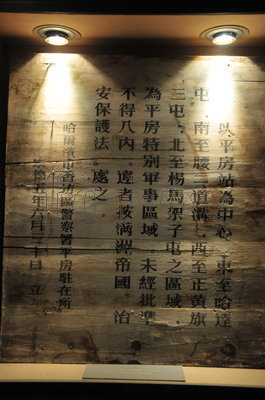 以平房站為中心，東至哈達
屯，南至腰三道溝，西至正黃旗
三屯，北至楊馬架子屯之區域，
為平房特別軍事區域，未經批準
不得入內。違者按滿洲帝國《治
安保護法》處之。
哈爾濱市香坊區警察署平房駐在所
康德五年六月三十日 立